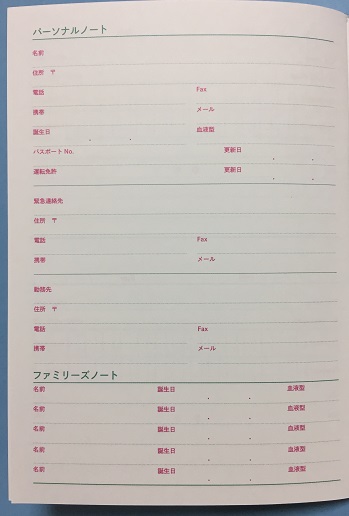 パーソナルノート
名前
住所 〒
電話 Fax
携帯 メール
誕生日 . . 血液型
パスポート No. 更新日 . .
運転免許 更新日 . .
緊急連絡先
住所 〒
電話 Fax
携帯 メール
勤務先
住所 〒
電話 Fax
携帯 メール
ファミリーズノート
名前 誕生日 . . 血液型
名前 誕生日 . . 血液型
名前 誕生日 . . 血液型
名前 誕生日 . . 血液型
名前 誕生日 . . 血液型